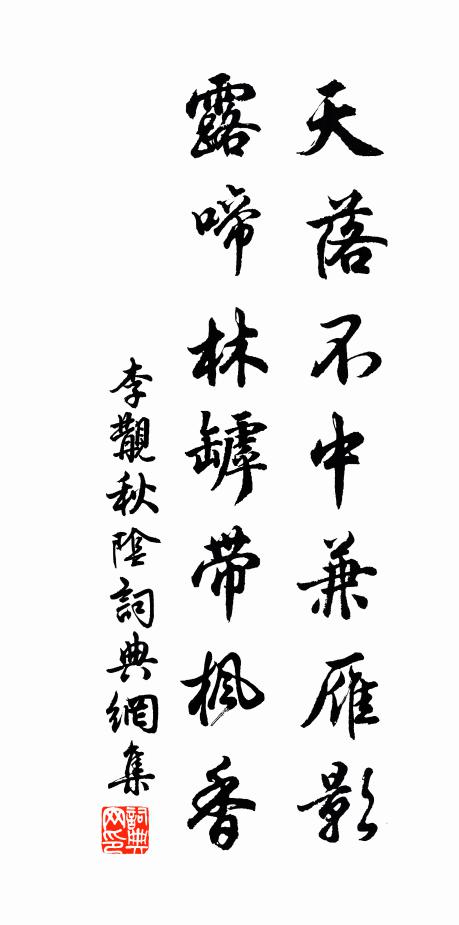 天落不中兼雁影
露啼林罅帶楓香
李覯秋陰詞典網集
詞典
网印